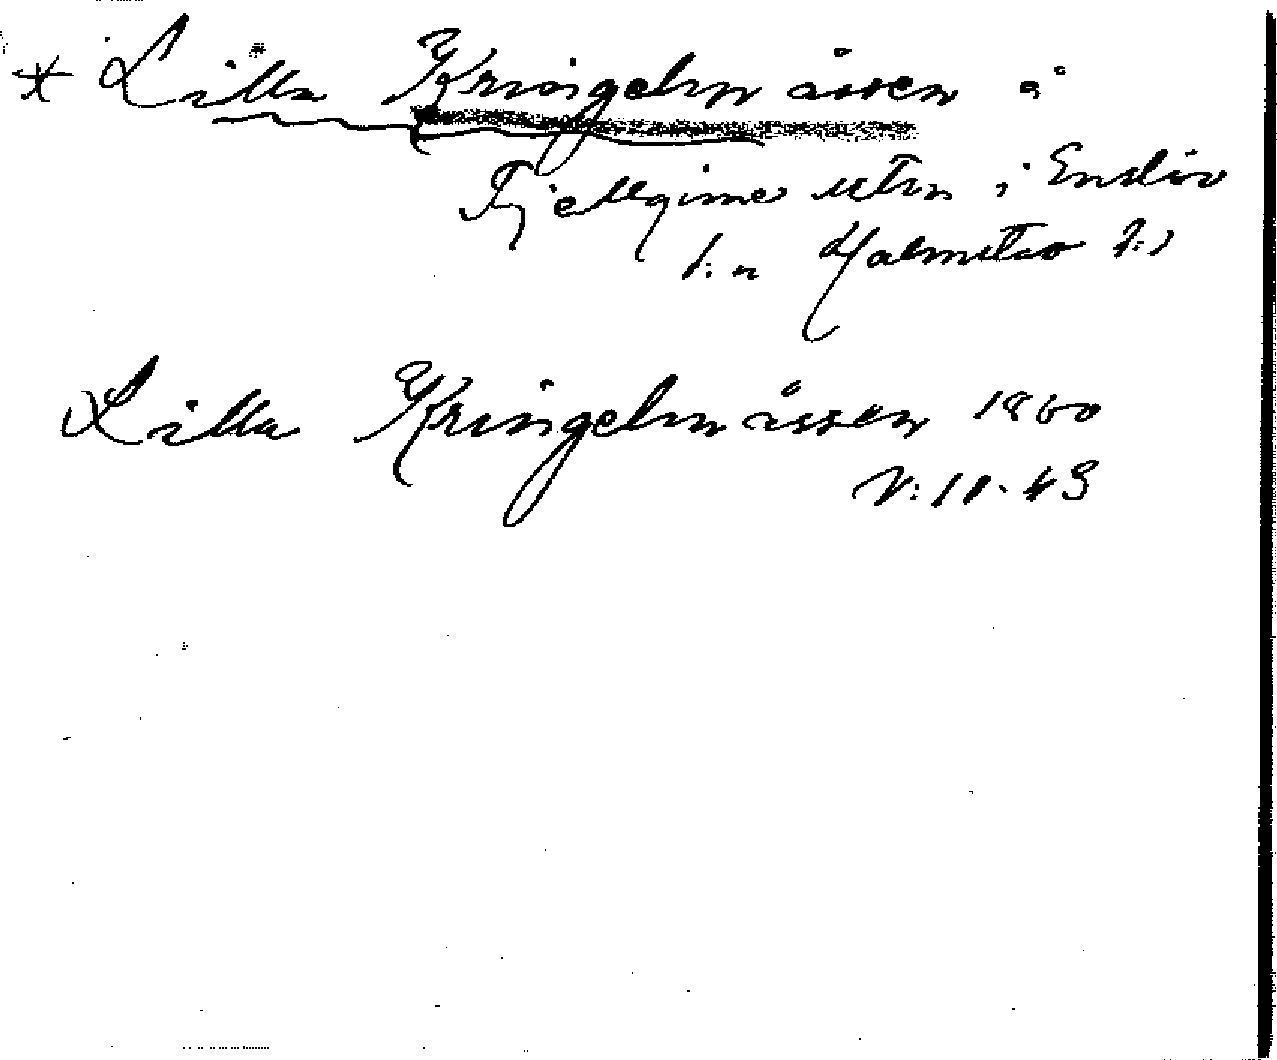 * Lilla Kringelmåssen å
Fjellgime utm i Enslöv
s:n Halmstad h:d
Lilla Kringelmåssen 1860
V: 11. 43